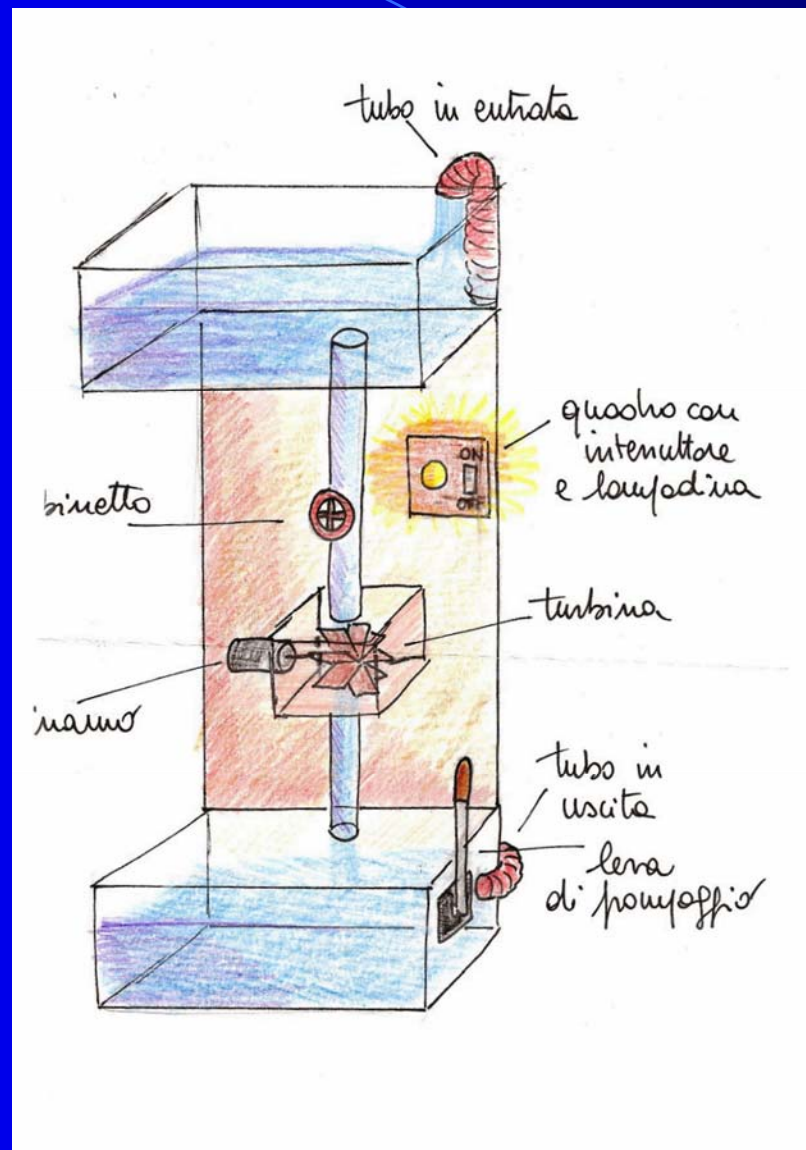 tubo in entrata
quadro con
interruttore
e lampadina
ON
OFF
binetto
turbina
inamo
tubo in
uscita
leva
di pompaggio